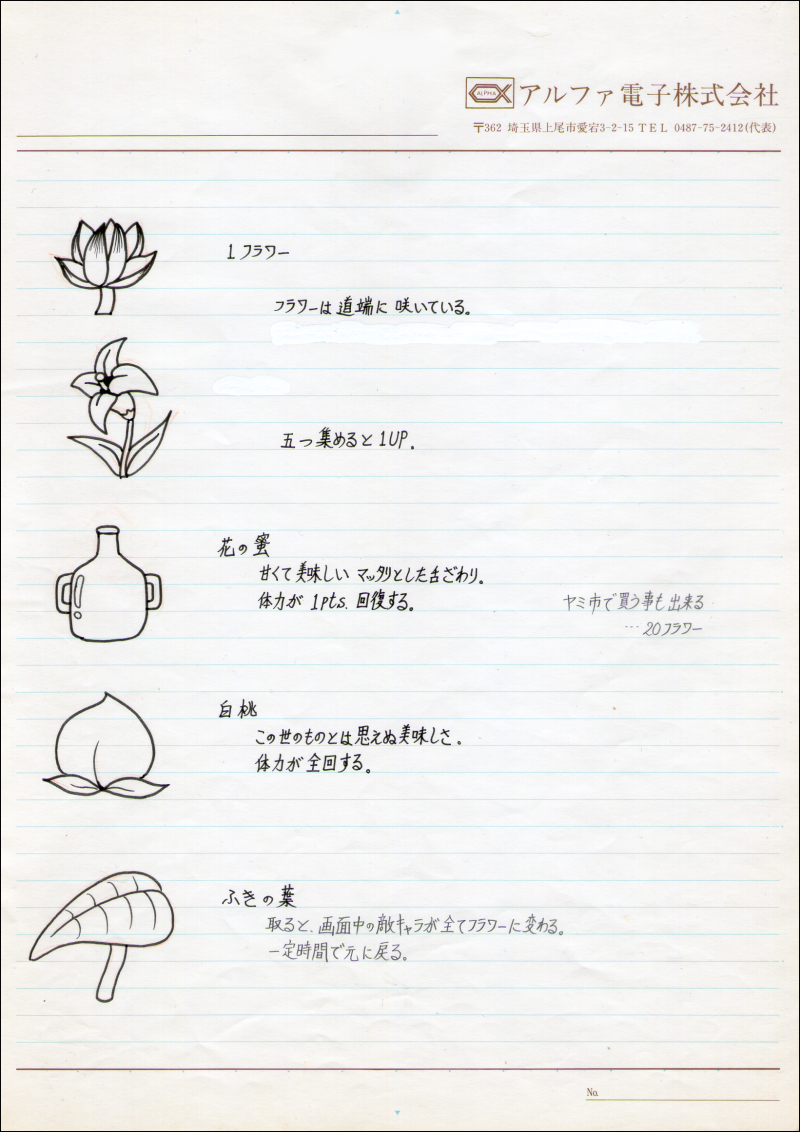 ALPHA アルファ電子株式会社
〒362 埼玉県上尾市愛宕3-2-15 TEL 0487-75-2412(代表)
1フラワー
フラワーは道端に咲いている。
五つ集めると1UP.
花の蜜
甘くて美味しいマッタリとした舌ざわり。
体力が1pts.回復する。
ヤミ市で買う事も出来る
…20フラワー
白桃
この世のものとは思えぬ美味しさ。
体力が全回する。
ふきの葉
取ると、画面中の敵キャラが全てフラワーに変わる。
一定時間で元に戻る。
No.